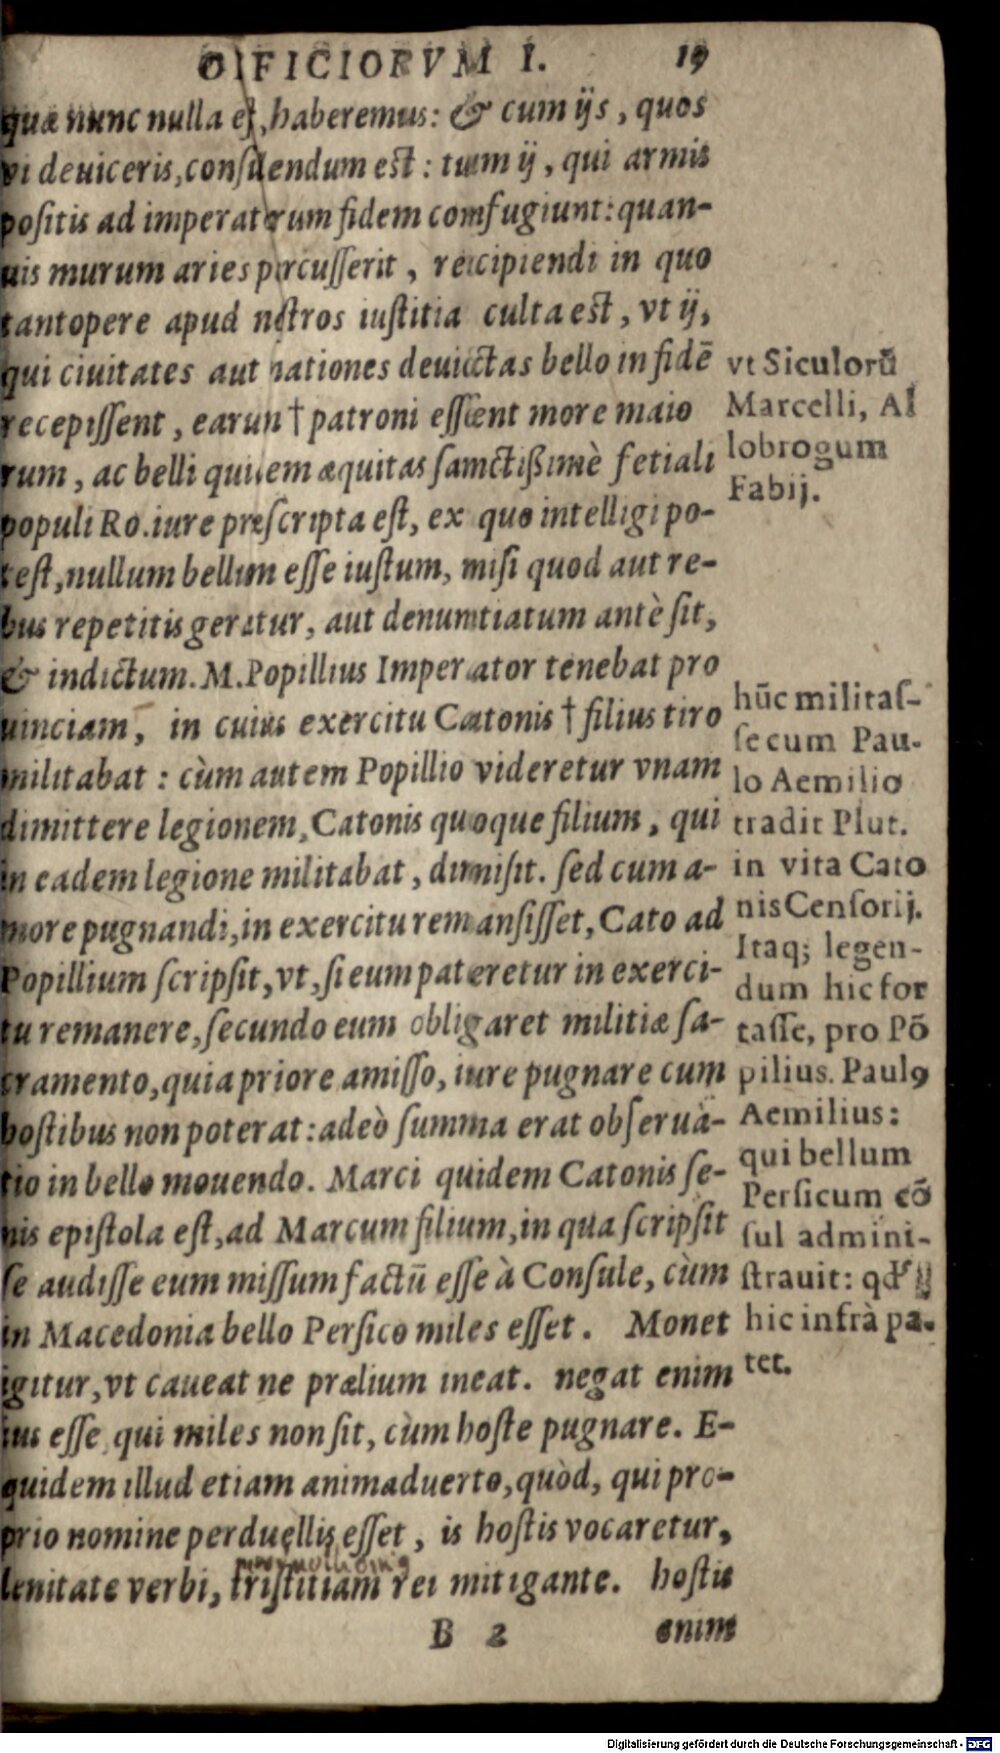 OFFICIORVM I. 19
quæ nunc nulla est, haberemus: & cum ijs, quos
vi deuiceris, consulendum est: tum ij, qui armis
positis ad imperatorum fidem confugiunt: quan-
uis murum aries percusserit, recipiendi in quo
tantopere apud nostros iustitia culta est, vt ij,
qui ciuitates aut nationes deuictas bello in fidē
recepissent, earum † patroni essent more maio
rum, ac belli quidem æquitas sanctißimè fetiali
populi Ro. iure præscripta est, ex quo intelligi po-
test, nullum bellum esse iustum, nisi quod aut re-
bus repetitis geratur, aut denuntiatum antè sit,
& indictum. M. Popillius Imperator tenebat pro
uinciam, in cuius exercitu Catonis † filius tiro
militabat: cùm autem Popillio videretur vnam
dimittere legionem, Catonis quoque filium, qui
in eadem legione militabat, dimisit. sed cum a-
more pugnandi, in exercitu remansisset, Cato ad
Popillium scripsit, vt, si eum pateretur in exerci-
tu remanere, secundo eum obligaret militiæ sa-
cramento, quia priore amisso, iure pugnare cum
hostibus non poterat: adeò summa erat obserua-
tio in bello mouendo. Marci quidem Catonis se-
nis epistola est, ad Marcum filium, in qua scripsit
se audisse eum missum factū esse à Consule, cùm
in Macedonia bello Persico miles esset. Monet
igitur, vt caueat ne prælium ineat. negat enim
ius esse qui miles non sit, cùm hoste pugnare. E-
quidem illud etiam animaduerto, quòd, qui pro-
prio nomine perduellis esset, is hostis vocaretur,
lenitate verbi, tristitiam rei mitigante. hostis
B 2 enim
vt Siculorū
Marcelli, Al
lobrogum
Fabij.
hūc militas-
se cum Pau-
lo Aemilio
tradit Plut.
in vita Cato
nis Censorij.
Itaq; legen-
dum hic for
tasse, pro Pō
pilius. Paulꝰ
Aemilius:
qui bellum
Persicum cō
sul admini-
stravit: qd'
hic infrà pa-
tet.
Digitalisierung gefördert durch die Deutsche Forschungsgemeinschaft - DFG